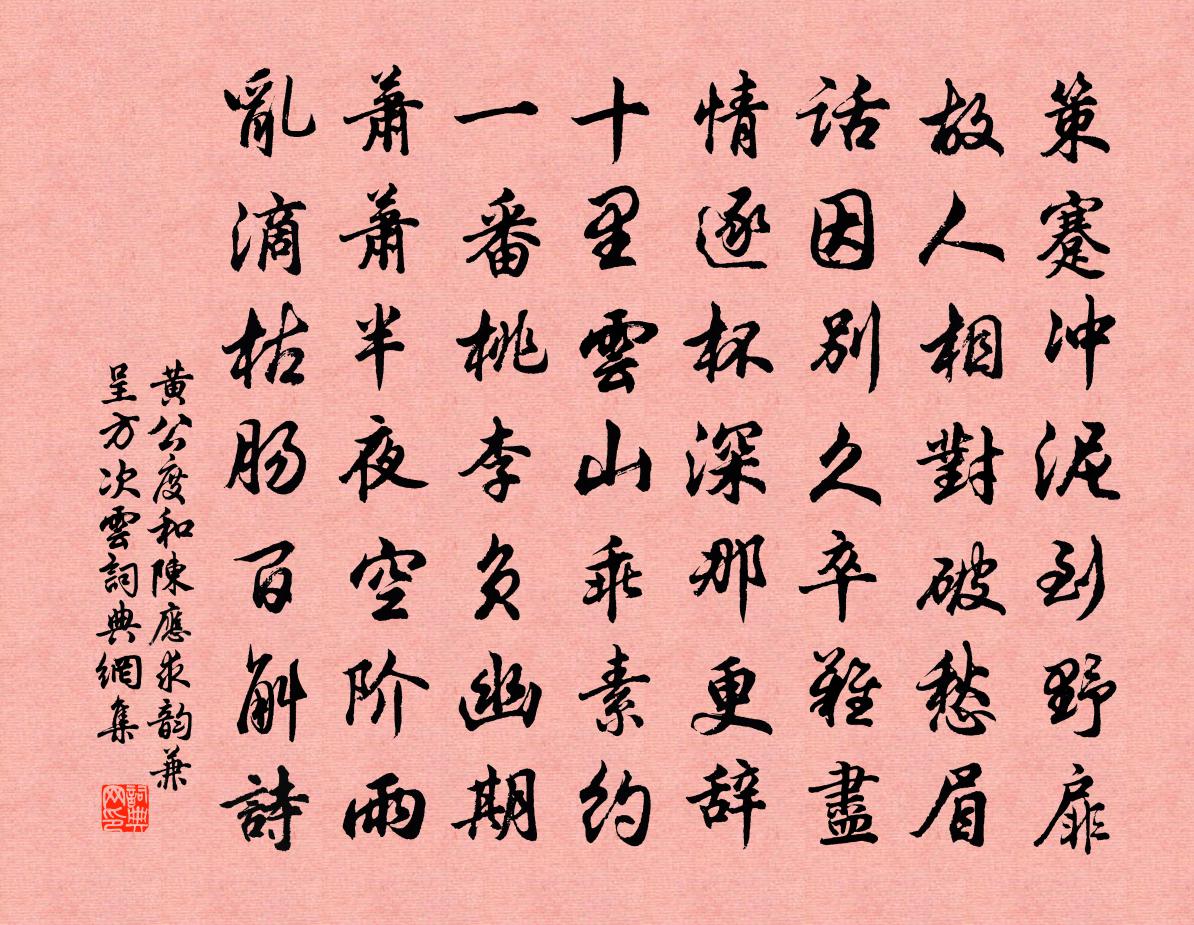 策蹇冲泥到野扉
故人相對破愁眉
話因别久卒難盡
情逐杯深那更辞
十里雲山乖素約
一番桃李負幽期
蕭蕭半夜空阶雨
亂滴枯肠百斛詩
黄公度和陳應求韵兼
呈方次雲詞典網集
詞典
网印